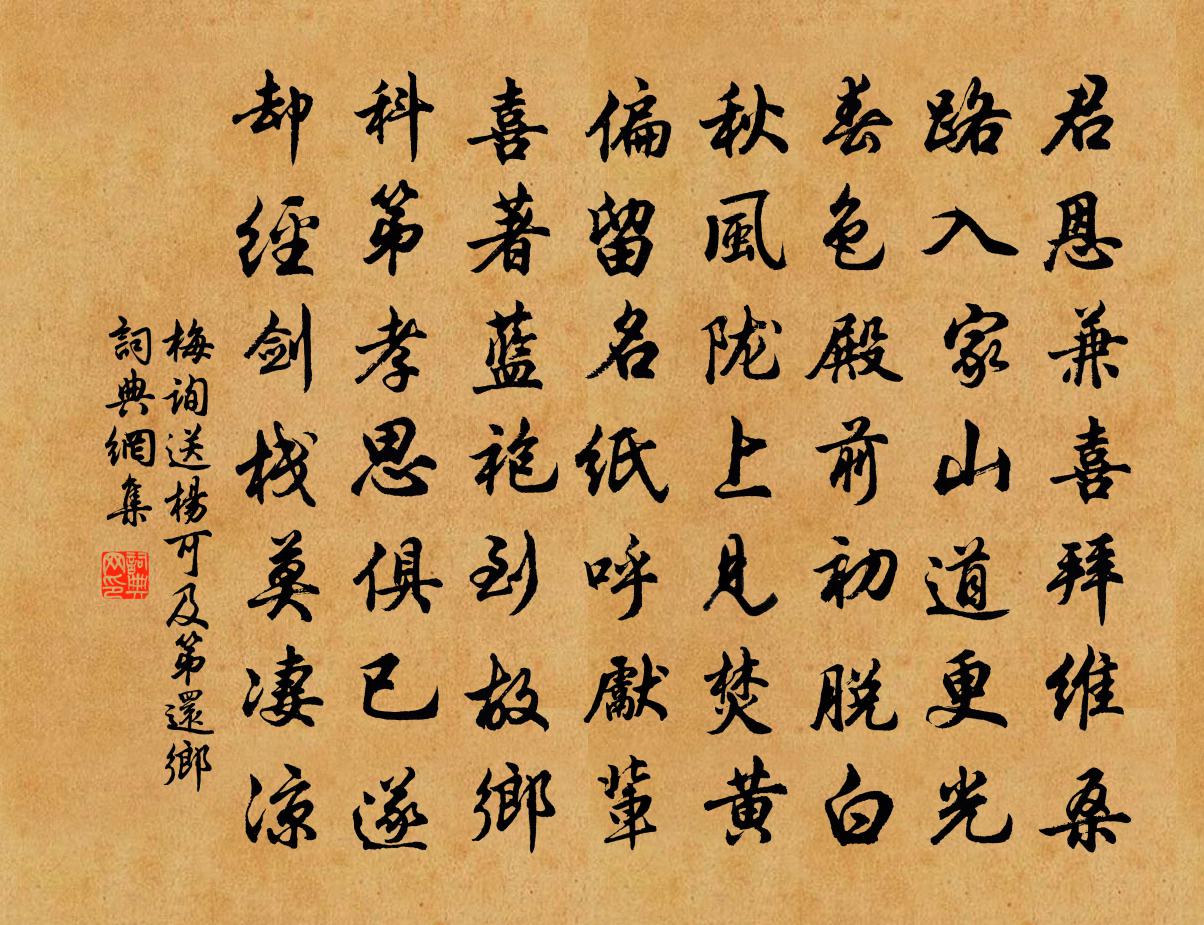 君恩兼喜拜維桑
路入家山道更光
春色殿前初脱白
秋風陇上見焚黄
偏留名紙呼獻輩
喜著藍袍到故鄉
科第孝思俱已遂
却經剑棧莫凄凉
梅詢送楊可及第還鄉
詞典網集
詞典网印